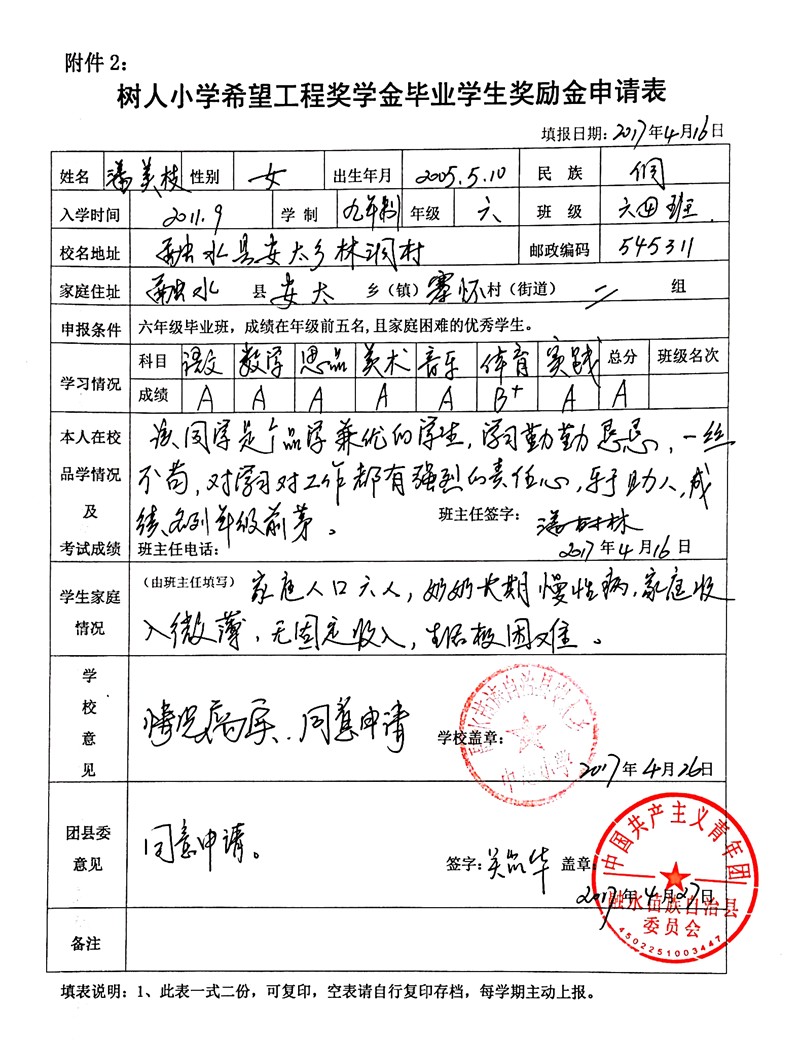 附件2：
树人小学希望工程奖学金毕业学生奖励金申请表
填报日期：2017年4月16日
姓名 潘美枝 性别 女 出生年月 2005.5.10 民族 侗
入学时间 2011.9 学制 九年制 年级 六 班级 六四班.
校名地址 融水县安太乡林洞村 邮政编码 545311
家庭住址 融水 县 安太 乡（镇）寨怀 村（街道）二 组
申报条件 六年级毕业班，成绩在年级前五名，且家庭困难的优秀学生。
学习情况 科目 语文 数学 思品 美术 音乐 体育 实践 总分 班级名次
成绩 A A A A A B+ A A
本人在校品学情况及考试成绩
该同学是个品学兼优的学生，学习勤勤恳恳，一丝
不苟，对学习对工作都有强烈的责任心，乐于助人，成
绩名列年级前茅。
班主任签字：潘树林
班主任电话： 2017年4月16日
学生家庭情况
（由班主任填写）家庭人口六人，奶奶长期慢性病，家庭收
入微薄，无固定收入，生活极困难。
学校意见
情况属实.同意申请
学校盖章：
中心小学
2017年4月26日
团县委意见
同意申请。
签字： 盖章：
2017年4月27日
中国共产主义青年团
融水苗族自治县
委员会
4502251003447
备注
填表说明：1、此表一式二份，可复印，空表请自行复印存档，每学期主动上报。